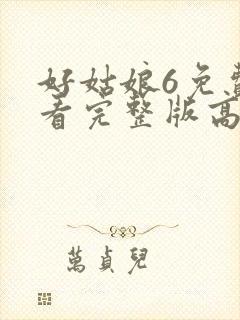 好姑娘6免费
看完整版高
萬貞兒